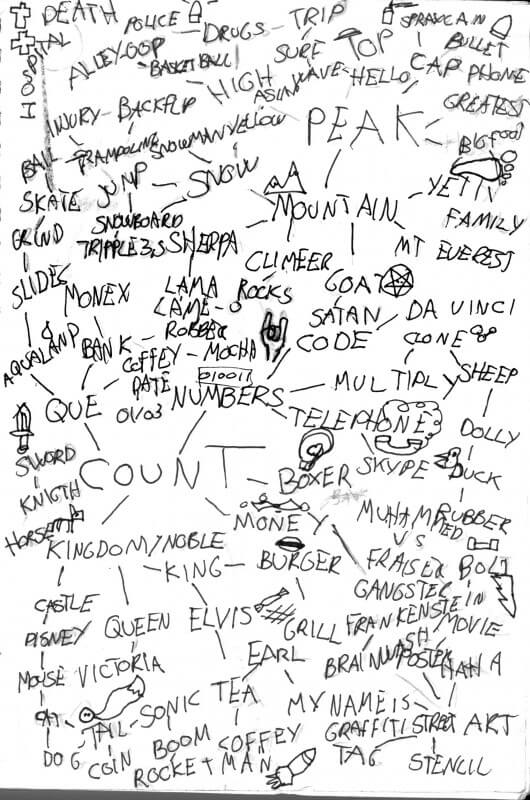 DEATH
POLICE
DRUGS - TRIP
SPRAYCAN
BULLET
ALLEYOOP
BASKETBALL
SURF
TOP
CAP PHONE
HIGH
WAVE
HELLO
ASIAN
GREATEST
INJURY - BACKFLIP
PEAK
BIGFOOT
BAIL
TRAMPOLINE
SNOWMAN
YELLOW
SKATE
JUMP
SNOW
YETI
MOUNTAIN
FAMILY
SNOWBOARD
GRIND
TRIPPLE
SHERPA
MT EVEREST
CLIMEER
SLIDE
LAMA
ROCKS
GOAT
MONEX
LAME
SATAN
DA VINCI
ROBBER
CODE
CLONE
BANK - COFFEY - MOCHA
SHEEP
DATE
010011
MULTIPL
QUE
01/03
NUMBERS
TELEPHONE
DOLLY
SWORD
COUNT
BOXER
SKYPE
DUCK
KNIGTH
MONEY
RUBBER
HORSE
VS
KINGDOM/NOBLE
FRAISER
KING - BURGER
GANGSTER
CASTLE
FRANKENSTEIN
DISNEY
QUEEN
ELVIS
GRILL
MOVIE
EARL
POSTER
MOUSE
VICTORIA
HAHA
CAT
TAIL - SONIC
TEA
MY NAME IS
GRAFFITI
STREET ART
DOG
COIN
BOOM
COFFEY
TAG
STENCIL
ROCKET MAN